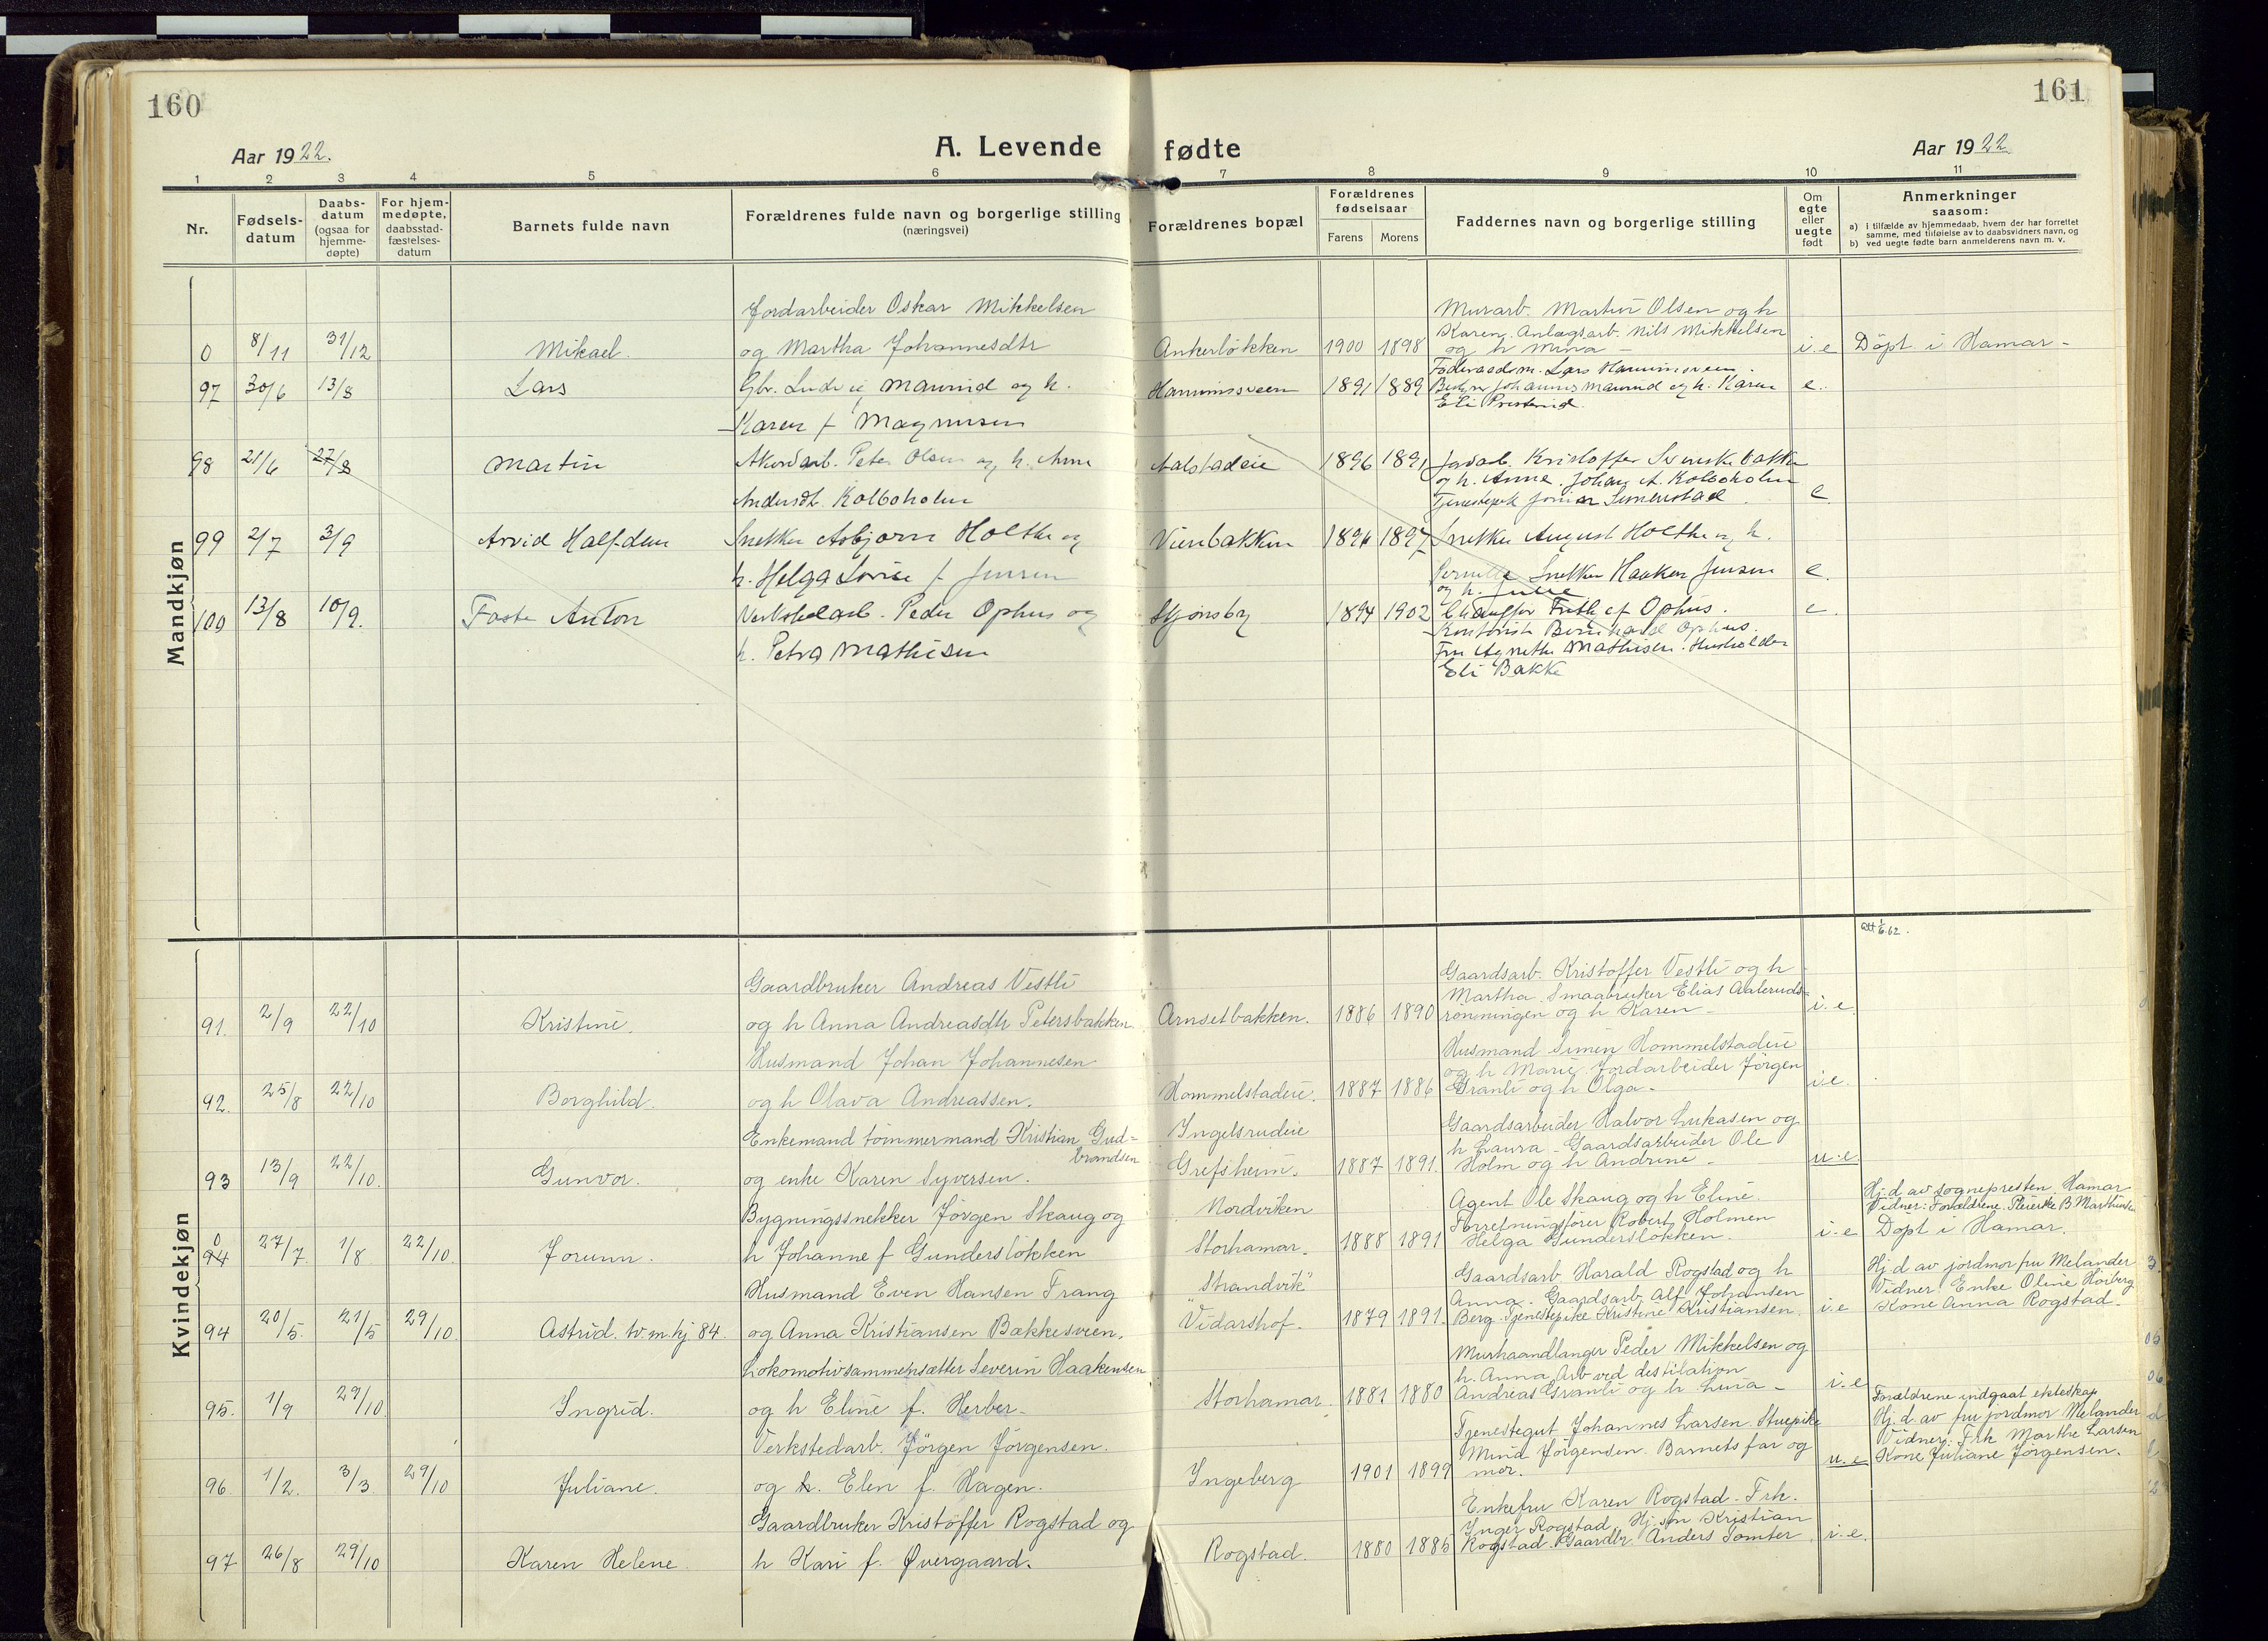 160
161
Aar 1922.
A. Levende fødte
Aar 1922
1 2 3 4 5 6 7 8 9 10 11
Nr.
Fødsels-
datum
Daabs-
datum
(ogsaa for
hjemme-
døpte)
For hjem-
medøpte,
daabsstad-
fæstelses-
datum
Barnets fulde navn
Forældrenes fulde navn og borgerlige stilling
(næringsvei)
Forældrenes bopæl
Forældrenes
fødselsaar
Farens Morens
Faddernes navn og borgerlige stilling
Om
egte
eller
uegte
født
Anmerkninger
saasom:
a) i tilfælde av hjemmedaab, hvem der har forrettet
samme, med tilføielse av to daabsvidners navn, og
b) ved uegte fødte barn anmelderens navn m. v.
Mandkjøn
Jordarbeider Oskar Mikkelsen
Murarb. Martin Olsen og h
Karen. Anlægsarb. Nils Mikkelsen
0 8/11 31/12 Mikael. og Martha Johannesdtr Ankerløkken 1900 1898 og h Mina - i.e Døpt i Hamar-
Føderaadsm. Lars
97 30/6 13/8 Lars Gbr. Ludvig Maurud og h. 1891 1889 Johannes Maurud og h. Karen e.
Eli
Karen f Magnusen
98 21/6 27/8 Martin Peter Olsen og h. Anna Aalstadeie 1896 1891 Jordarb. Kristoffer Svenskebakken
og h. Anne. Johan A. Kolboholm
Andersdt. Kolboholm
Tjenestepik Simenstad e.
99 2/7 3/9 Arvid Halfdan Snekker Asbjørn Holthe og Vienbakken 1896 1897 Snekker August Holthe og h.
h. Helga Lovise f Jensen
Pernille Snekker Haakon Jensen e.
og h. Julie
100 13/8 10/9. Faste Anton Verkstedarb. Peder Ophus og Skjønsby 1894 1902 Chauffør Ophus. e.
Kontorist Bernhard Ophus.
h. Petra Mathisen
Fru Agnethe Mathisen. Husholder
Eli Bakke
Kvindekjøn
Att 1/6.62.
Gaardbruker Andreas Vestli
Gaardsarb. Kristoffer Vestli og h
Martha. Smaabruker Elias Aaleruds-
91. 2/9 22/10 Kristine. og h Anna Andreasdtr Petersbakken Arnsetbakken. 1886 1890 rønningen og h Karen- i.e.
Husmand Johan Johannesen
Husmand Simen Hommelstadeie
og h Marie. Jordarbeider Jørgen
92. 25/8 22/10 Borghild. og h Olava Andreassen. Hommelstadeie. 1887 1886 Granli og h Olga- i.e.
Enkemand tømmermand Kristian Gud-
brandsen
Ingelsrudeie
Gaardsarbeider Halvor Lukasen og
h Laura - Gaardsarbeider Ole
93 13/9 22/10. Gunvor. og enke Karen Syversen. Grefsheim. 1887 1891. Holm og h Andrine - u.e.
Bygningssnekker Jørgen Skaug og
Nordviken
Agent Ole Skaug og h Eline.
Forretningsfører Robert Holmen
Hj.d av sognepresten Hamar
Vidner: Forældrene.
0
94 27/7 1/8 22/10. Jorunn. h Johanne f Gundersløkken Storhamar. 1888 1891 Helga Gundersløkken. i.e Døpt i Hamar.
Husmand Even Hansen Frang
"Strandvik"
Gaardsarb. Harald Rogstad og h
Anna. Gaardsarb. Alf Johansen
Hj.d av jordmor fru Melander
Vidner: Enke Oline Høiberg
94 20/5. 21/5 29/10. Astrid. tv.m.kj 84. og Anna Kristiansen Bakkesveen. Vidarshof. 1879 1891. Berg. Tjenestepike Kristine Kristiansen. i.e Kone Anna Rogstad.
Lokomotivsammensætter Severin Haakensen
Murhaandlanger Peder Mikkelsen og
h. Anna. Arb ved destilation
95. 1/9 29/10. Ingrid. og h Eline f. Herber- Storhamar. 1881 1880 Andreas Granli og h Luia - i.e
Verkstedarb. Jørgen Jørgensen.
Tjenestegut Johannes Larsen. Stuepike
Mina Jørgensen. Barnets far og
Forældrene indgaat ekteskap
Hj.d. av fru jordmor Melander
Vidner: Frk Marthe Larsen
96 1/2. 3/3 29/10 Juliane. og h. Elen f. Hagen. Ingeberg 1901 1899 mor. u.e Kone Juliane Jørgensen.
Gaardbruker Kristoffer Rogstad og
Enkefru Karen Rogstad - Frk.
Inger Rogstad. Hj.søn Kristian
97 26/8 29/10 Karen Helene. h Kari f. Øvergaard. Rogstad. 1880 1885 Rogstad. Gaardbr. Anders Tomter i.e.